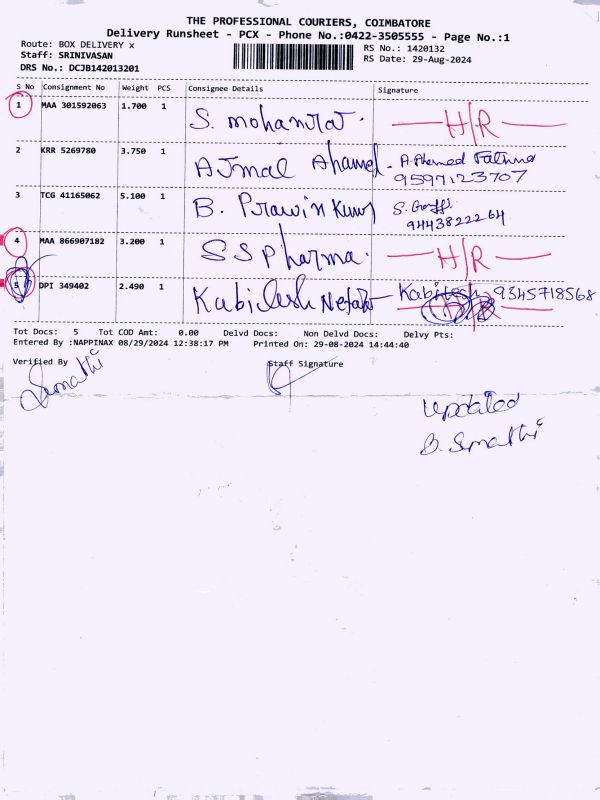 THE PROFESSIONAL COURIERS, COIMBATORE
Delivery Runsheet - PCX - Phone No.:0422-3505555 - Page No.:1
Route: BOX DELIVERY x
Staff: SRINIVASAN
DRS No.: DCJB142013201
RS No.: 1420132
RS Date: 29-Aug-2024
S No Consignment No Weight PCS Consignee Details Signature
1 MAA 301592063 1.700 1 S. mohanraj. H/R
2 KRR 5269780 3.750 1 AJmal Ahamed - A. Ahemed Fathima
9597123707
3 TCG 41165062 5.100 1 B. Prawin Kumar S.
9443822264
4 MAA 866907182 3.200 1 SS Pharma. H/R
5 DPI 349402 2.490 1 Kabilesh Kabilesh 9345718568
H/R
Tot Docs: 5 Tot COD Amt: 0.00 Delvd Docs: Non Delvd Docs: Delvy Pts:
Entered By :NAPPINAX 08/29/2024 12:38:17 PM Printed On: 29-08-2024 14:44:40
Verified By Staff Signature
Sumathi
Updated
B. Sumathi